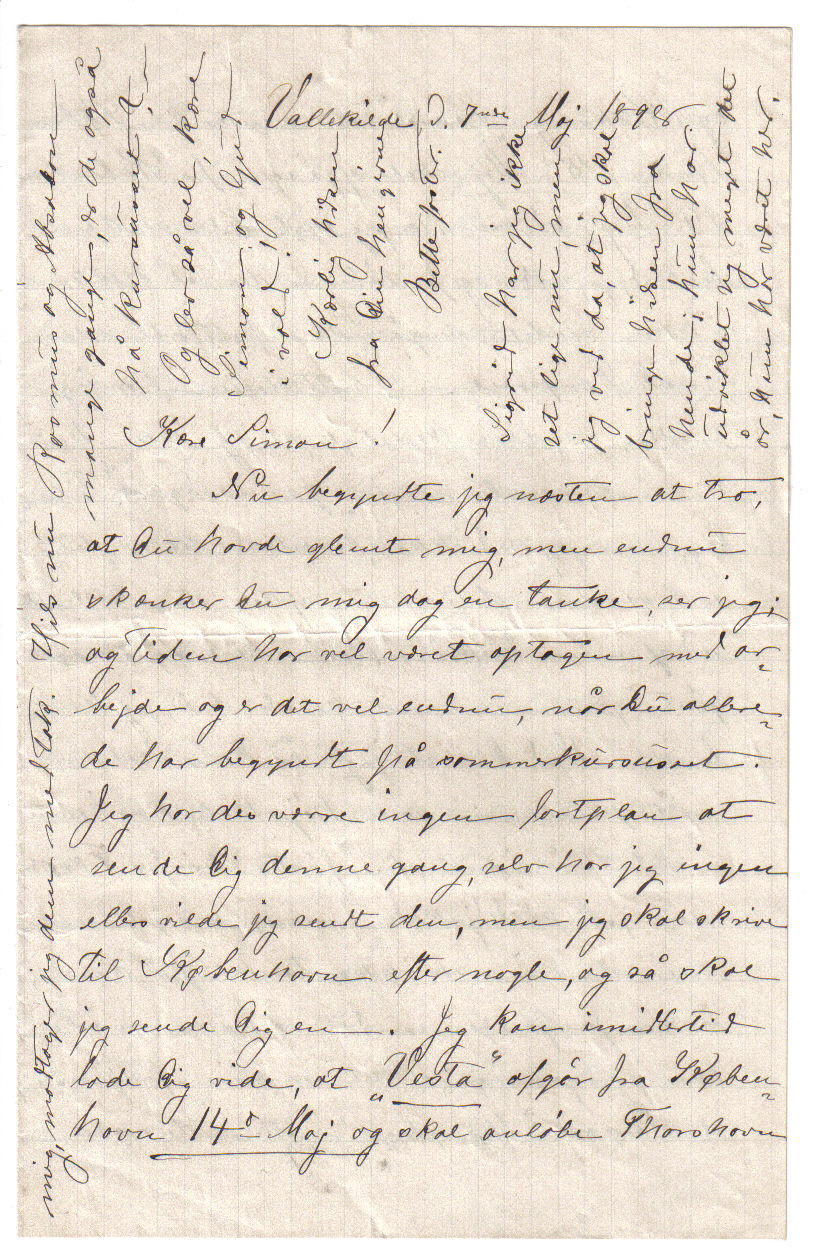 Vallekilde, d. 7nde Maj 1898
Kære Simon!
Nu begyndte jeg næsten at tro,
at Du havde glemt mig, men endnu
skænker Du mig dog en tanke, ser jeg;
og tiden har vel været optagen med ar-
bejde og er det vel endnu, når Du allere-
de har begyndt på sommerkursuset.
Jeg har desværre ingen fartplan at
sende Dig denne gang, selv har jeg ingen
ellers vilde jeg sendt den, men jeg skal skrive
til København efter nogle, og så skal
jeg sende Dig en. Jeg kan imidlertid
lade Dig vide, at „Vesta“ afgår fra Køben-
havn 14d Maj og skal anløbe Thorshavn
mig, modtager jeg dem med tak. Hils nu Rasmus og Absalon
mange gange, er de også
på kursuset?
Og lev så vel, kære
Simon og Gud
i vold!
Kærlig hilsen
fra Din hengivne
Sigrid har jeg ikke
set lige nu, men
jeg ved da, at jeg skal
bringe hilsen fra
hende; hun har
udviklet sig meget det
år, hun har været her.